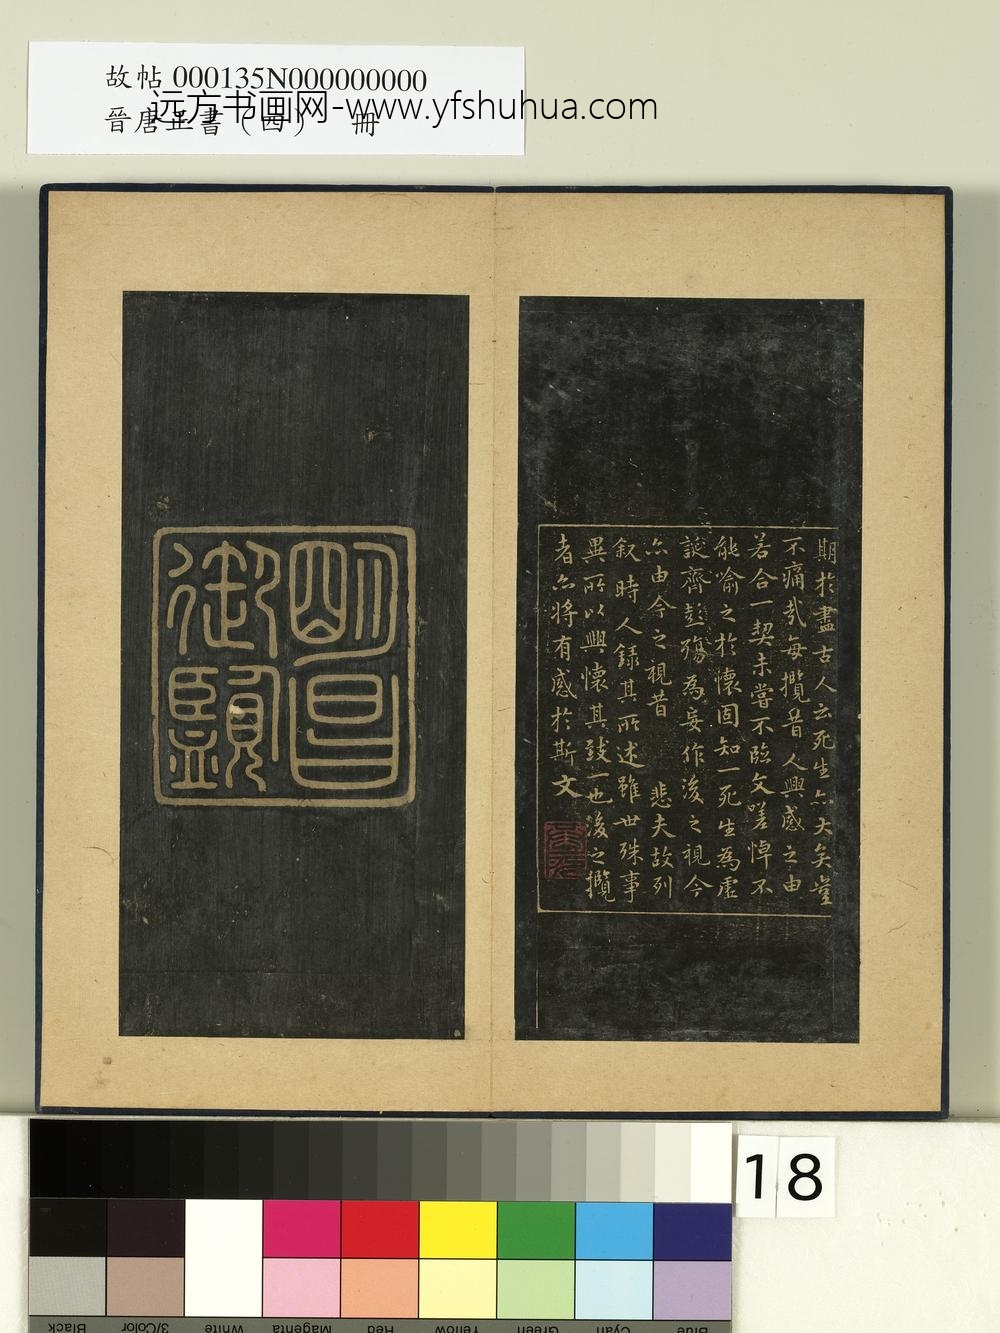 故帖 000135N000000000
晉唐正書（四） 冊
远方书画网-www.yfshuhua.com
期於盡古人云死生亦大矣豈
不痛哉每攬昔人興感之由
若合一契未嘗不臨文嗟悼不
能喻之於懷固知一死生為虛
誕齊彭殤為妄作後之視今
亦由今之視昔 悲夫故列
叙時人錄其所述雖世殊事
異所以興懷其致一也後之攬
者亦將有感於斯文
明昌
御覽
18
Black
3/Color
White
Magenta
Red
Yellow
Green
Cyan
Blue